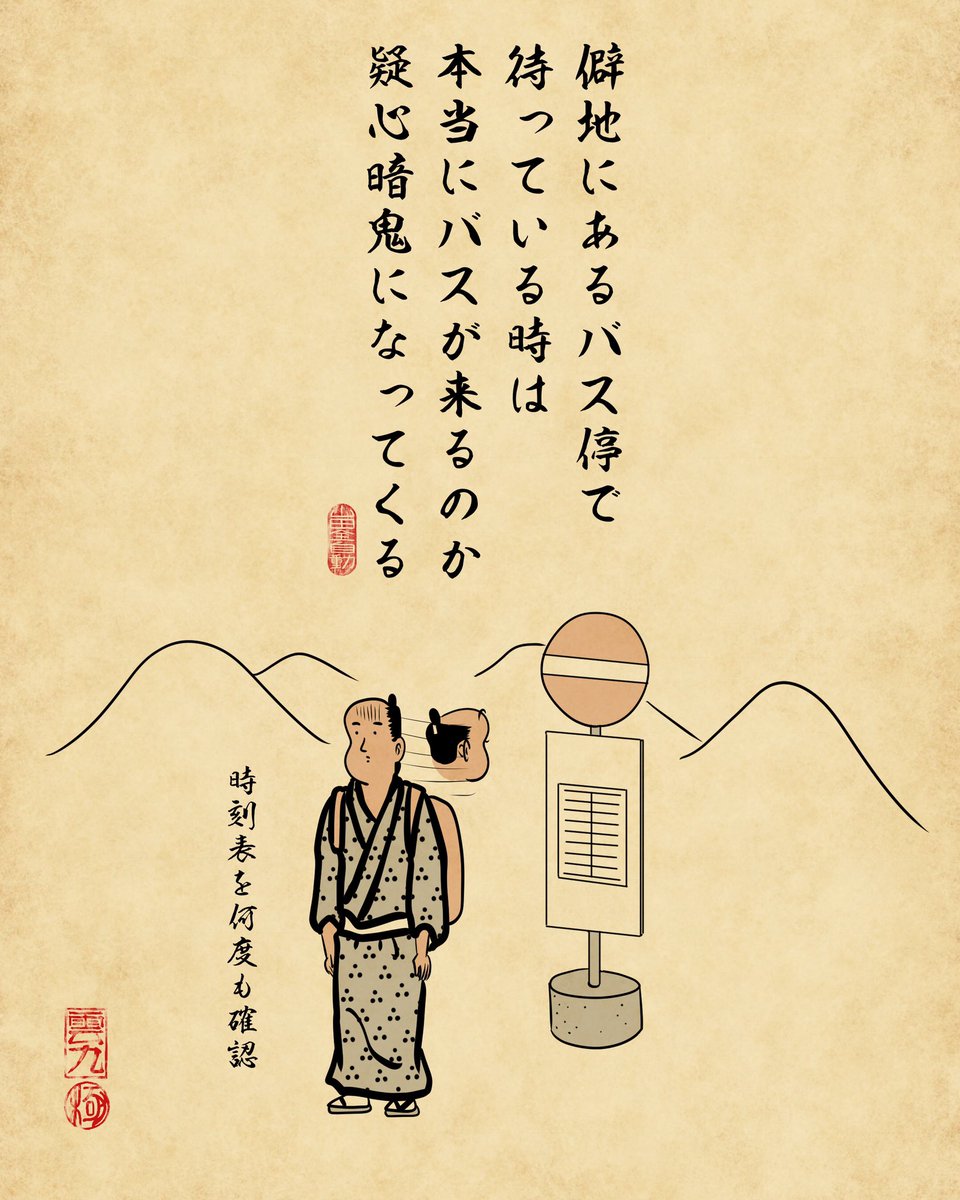 僻地にあるバス停で
待っている時は
本当にバスが来るのか
疑心暗鬼になってくる
時刻表を何度も確認